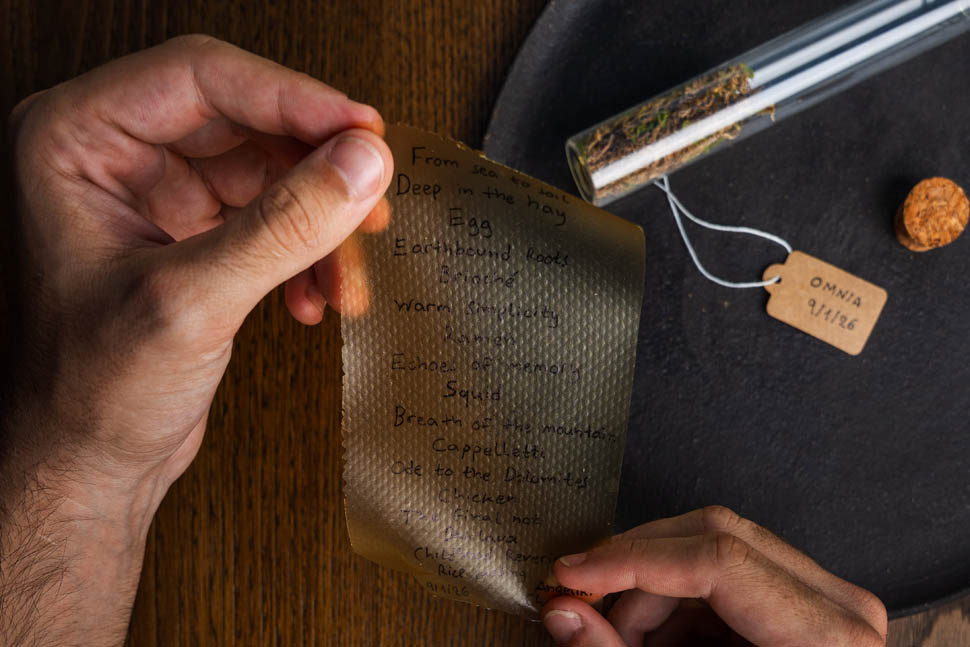 From sea to soil
Deep in the hay
Egg
Earthbound Roots
Brioche
Warm Simplicity
Ramen
Echoes of memory
Squid
Breath of the mountain
Cappelletti
Ode to the Dolomites
Chicken
The final not
Childhood Reveri
Rice
9/1/26
OMNIA
9/1/26